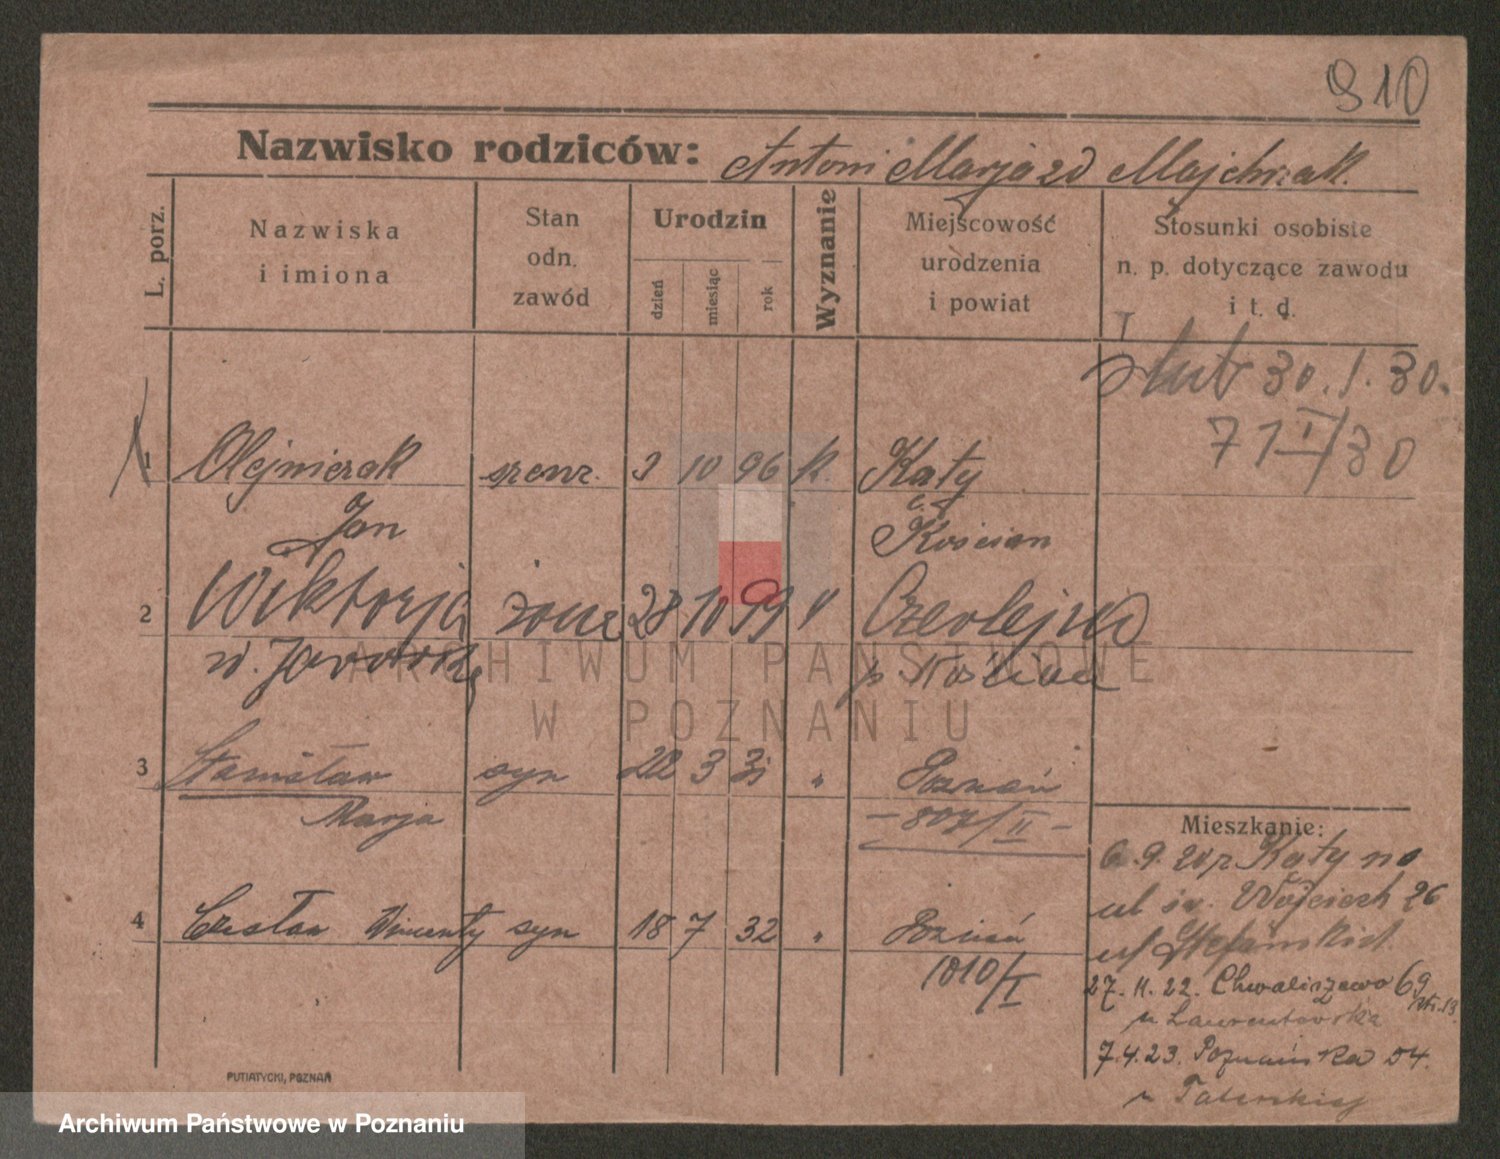 910
Nazwisko rodziców: Antoni Marja zd Majchrzak.
L. porz.
Nazwiska i imiona
Stan odn. zawód
Urodzin
dzień
miesiąc
rok
Wyznanie
Miejscowość urodzenia i powiat
Stosunki osobiste n. p. dotyczące zawodu i t. d.
ślub 30.1.30.
71 I/30
1 Olejniczak szewc. 3 10 96 k. Kąty
Jan Kościan
2 Wiktorja żona 28 10 99 " Czerlejno
p
3 Stanisław syn 22 3 31 " Poznań
Marja - 807/II -
4 Czesław Wincenty syn 18 7 32 " Poznań
1010/I
Mieszkanie:
6.9.20 z Kąty na
ul św. Wojciech 26
27.11.22. Chwaliszewo 69
7.4.23. Poznańska 54.
PUTIATYCKI, POZNAŃ
ARCHIWUM PAŃSTWOWE
W POZNANIU
Archiwum Państwowe w Poznaniu